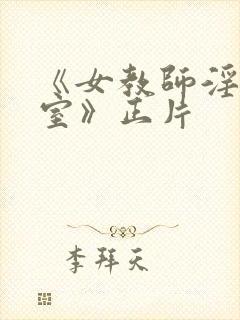 《女教师淫
室》正片
李拜天